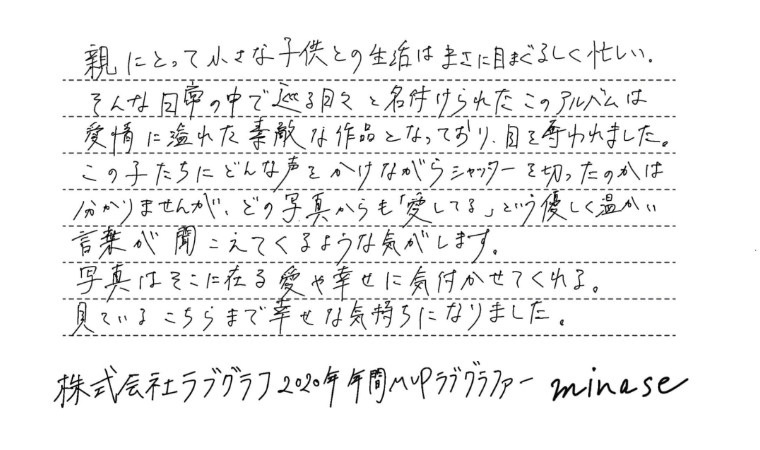 親にとって小さな子供との生活はまさに目まぐるしく忙しい。
そんな日常の中で巡る日々と名付けられたこのアルバムは
愛情に溢れた素敵な作品となっており、目を奪われました。
この子たちにどんな声をかけながらシャッターを切ったのかは
分かりませんが、どの写真からも「愛してる」という優しく温かい
言葉が聞こえてくるような気がします。
写真はそこに在る愛や幸せに気付かせてくれる。
見ているこちらまで幸せな気持ちになりました。
株式会社ラブグラフ2020年年間MVPラブグラファー minase